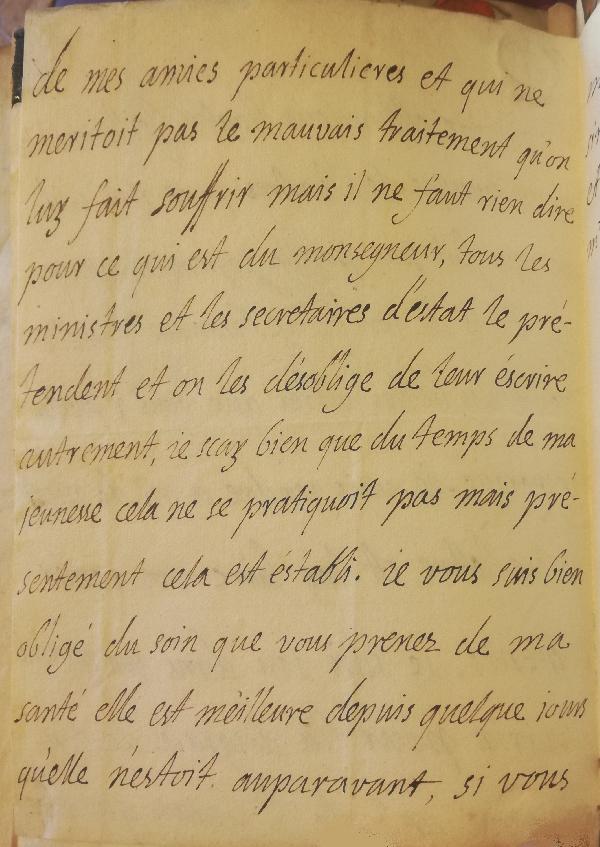 de mes amies particulieres et qui ne
meritoit pas le mauvais traitement qu'on
luy fait souffrir mais il ne faut rien dire
pour ce qui est du monsegneur, tous les
ministres et les secretaires d'éstat le pré-
tendent et on les désoblige de leur éscrire
autrement, ie scay bien que du temps de ma
jeunesse cela ne se pratiquoit pas mais pré-
sentement cela est éstabli. ie vous suis bien
obligé du soin que vous prenez de ma
santé elle est méilleure depuis quelque iours
qu'elle n'estoit auparavant, si vous